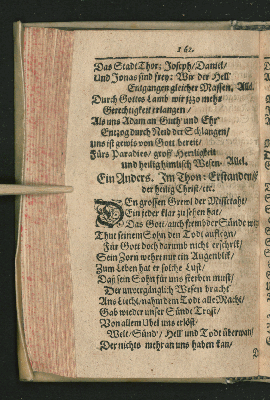 162.
Das Stadt Thor: Joseph/ Daniel/
Und Jonas sind frey: Wir der Hell
Entgangen gleicher Massen. Allel.
Durch Gottes Lamb wir jtzo mehr
Gerechtigkeit erlangen/
Als uns Adam an Guth und Ehr
Entzog durch Neid der Schlangen/
Uns ist gewis von Gott bereit/
Fürs Paradies/ gross Herrligkeit
und heilig himlisch Wesen. Allel.
Ein Anders. Im Thon: Erstanden ist
der heilig Christ/ etc.
DEn grossen Grewl der Missethat/
Ein jeder klar zu sehen hat/
Das Gott/ auch frembder Sünde wegn
Thut seinem Sohn den Todt aufflegn/
Für Gott doch darumb nicht erschrik/
Sein Zorn wehrt nur ein Augenblik/
Zum Leben hat er solche Lust/
Daß sein Sohn für uns sterben must/
Der unvergänglich Wesen bracht
Ans Liecht/ nahm dem Todt alle Macht/
Gab wieder unser Sünde Trost/
Von allem Ubel uns erlöst.
Welt/ Sünd/ Hell und Todt überwan/
Der nichts mehr an uns haben kan/